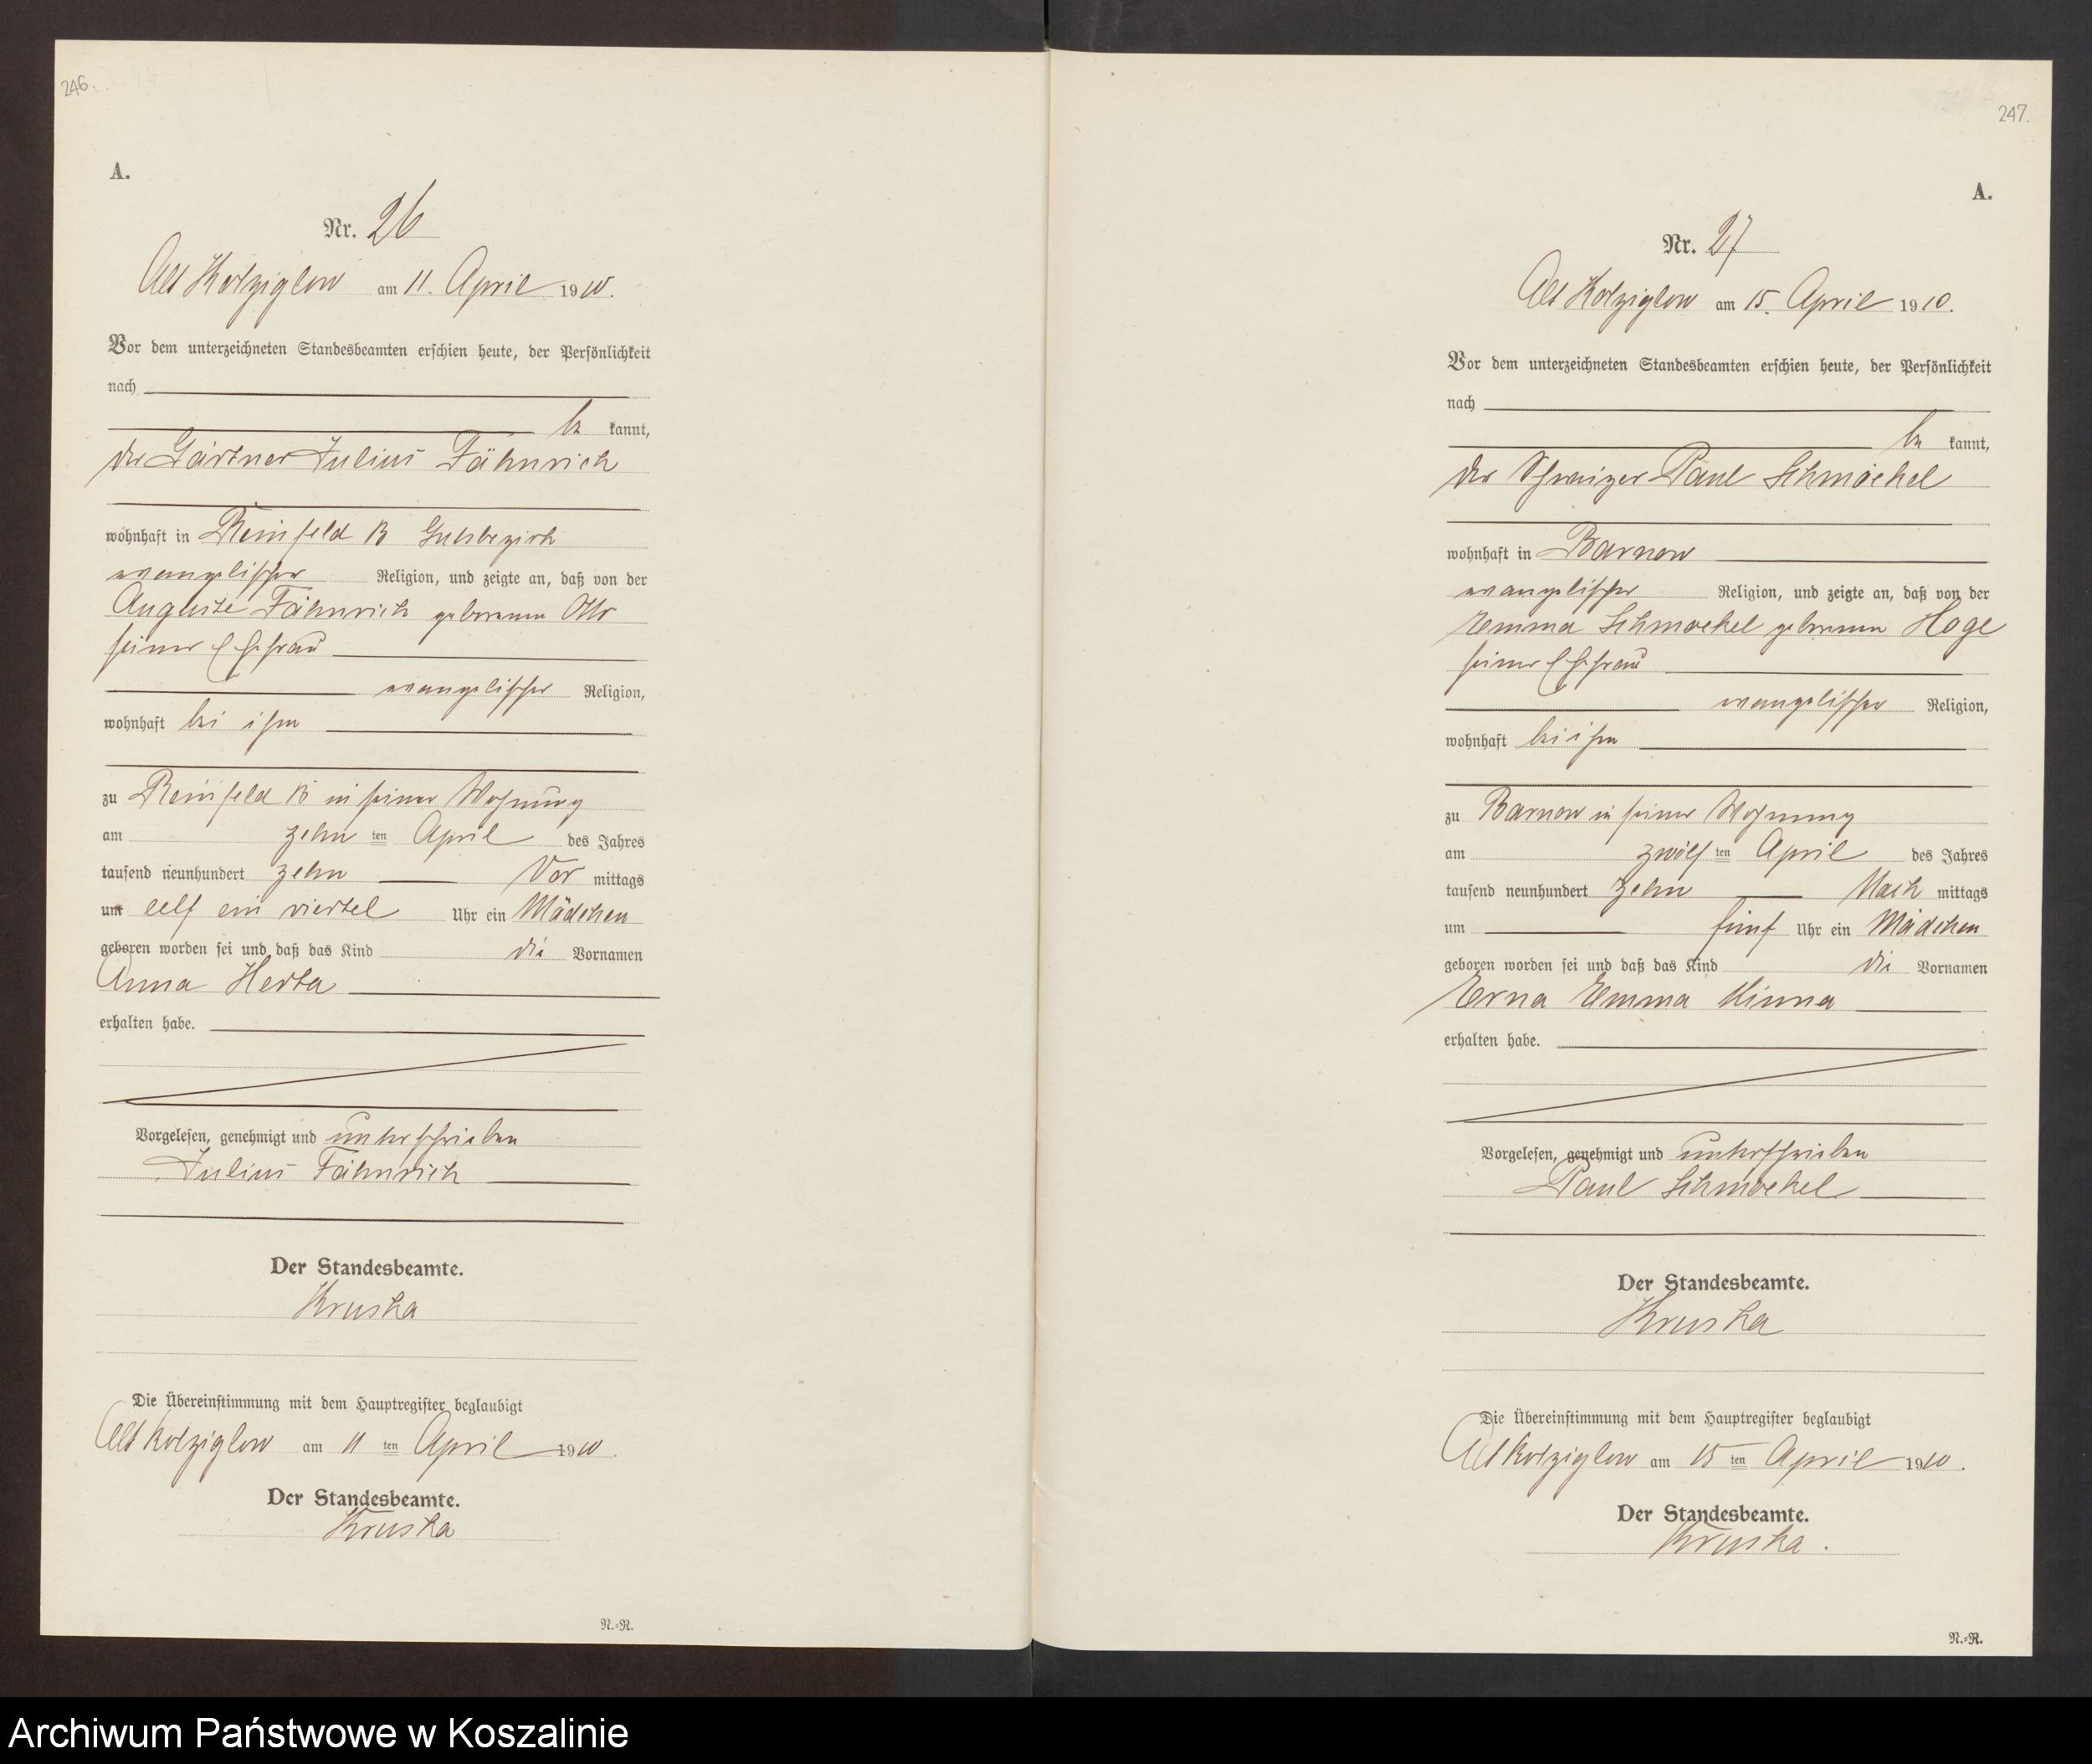 246.
A.
Nr. 26
Alt Kolziglow am 11. April 1910.
Vor dem unterzeichneten Standesbeamten erschien heute, der Persönlichkeit
nach
be kannt,
der Gärtner Julius Fähnrich
wohnhaft in Reinfeld B Gutsbezirk
evangelischer Religion, und zeigte an, daß von der
Auguste Fähnrich geborenen Otto
seiner Ehefrau
evangelischer Religion,
wohnhaft bei ihm
zu Reinfeld B in seiner Wohnung
am zehn ten April des Jahres
tausend neunhundert zehn Vor mittags
um elf ein viertel Uhr ein Mädchen
geboren worden sei und daß das Kind die Vornamen
Anna Herta
erhalten habe.
Vorgelesen, genehmigt und unterschrieben
Julius Fähnrich
Der Standesbeamte.
Kruska
Die Übereinstimmung mit dem Hauptregister beglaubigt
Alt Kolziglow am 11 ten April 1910.
Der Standesbeamte.
Kruska
N.=R.
247.
A.
Nr. 27
Alt Kolziglow am 15. April 1910.
Vor dem unterzeichneten Standesbeamten erschien heute, der Persönlichkeit
nach
be kannt,
der Schweizer Paul Schmöckel
wohnhaft in Barnow
evangelischer Religion, und zeigte an, daß von der
Emma Schmoekel geborenen Hoge
seiner Ehefrau
evangelischer Religion,
wohnhaft bei ihm
zu Barnow in seiner Wohnung
am zwölf ten April des Jahres
tausend neunhundert zehn Nach mittags
um fünf Uhr ein Mädchen
geboren worden sei und daß das Kind die Vornamen
Erna Emma Minna
erhalten habe.
Vorgelesen, genehmigt und unterschrieben
Paul Schmoekel
Der Standesbeamte.
Kruska
Die Übereinstimmung mit dem Hauptregister beglaubigt
Alt Kolziglow am 15 ten April 1910.
Der Standesbeamte.
Kruska.
N.=R.
Archiwum Państwowe w Koszalinie